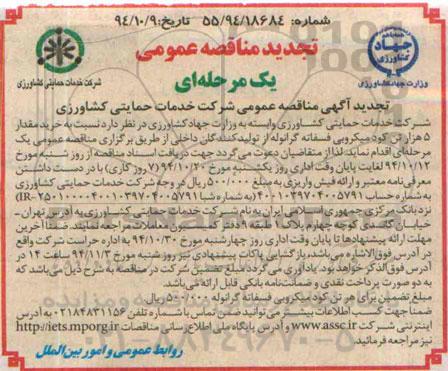 شماره: ۵۵/۹۴/۱۸۶۸۴   تاریخ: ۹۴/۱۰/۹
تجدید مناقصه عمومی
یک مرحله‌ای
جهاد کشاورزی
وزارت جهاد کشاورزی
شرکت خدمات حمایتی کشاورزی
تجدید آگهی مناقصه عمومی شرکت خدمات حمایتی کشاورزی
شرکت خدمات حمایتی کشاورزی وابسته به وزارت جهاد کشاورزی در نظر دارد نسبت به خرید مقدار
۵ هزار تن کود میکروبی فسفاته گرانوله از تولیدکنندگان داخلی از طریق برگزاری مناقصه عمومی یک
مرحله‌ای اقدام نماید. لذا از متقاضیان دعوت می‌گردد جهت دریافت اسناد مناقصه از روز شنبه مورخ
۹۴/۱۰/۱۲ لغایت پایان وقت اداری روز یک‌شنبه مورخ ۹۴/۱۰/۲۰ (۷ روز کاری) با در دست داشتن
معرفی‌نامه معتبر و ارائه فیش واریزی به مبلغ ۵۰۰/۰۰۰ ریال در وجه شرکت خدمات حمایتی کشاورزی
به شماره حساب ۴۰۰۱۰۳۹۷۰۴۰۰۵۷۹۱ (به شماره شبا
نزد بانک مرکزی جمهوری اسلامی ایران به نام شرکت خدمات حمایتی کشاورزی به آدرس تهران-
خیابان طبقه ۴ دفتر کمیسیون معاملات مراجعه نمایند. ضمناً آخرین
مهلت ارائه پیشنهادها تا پایان وقت اداری روز چهارشنبه مورخ ۹۴/۱۰/۳۰ به اداره حراست شرکت واقع
در آدرس فوق‌الاشاره می‌باشد. بازگشایی پاکات پیشنهادی نیز روز شنبه مورخ ۹۴/۱۱/۳ ساعت ۱۴ در
آدرس فوق‌الذکر خواهد بود. یادآوری می‌گردد مبلغ تضمین شرکت در مناقصه به شرح ذیل می‌باشد که
به دو صورت پرداخت نقدی و ضمانت‌نامه بانکی قابل ارائه می‌باشد.
مبلغ تضمین برای هر تن کود میکروبی فسفاته گرانوله ریال
ضمناً جهت کسب اطلاعات بیشتر می‌توانید ضمن تماس با شماره تلفن ۰۲۱۸۴۸۳۱۱۵۶ به آدرس
اینترنتی شرکت www.assc.ir و آدرس پایگاه ملی اطلاع‌رسانی مناقصات http://iets.mporg.ir
نیز مراجعه فرمائید.
روابط عمومی و امور بین‌الملل